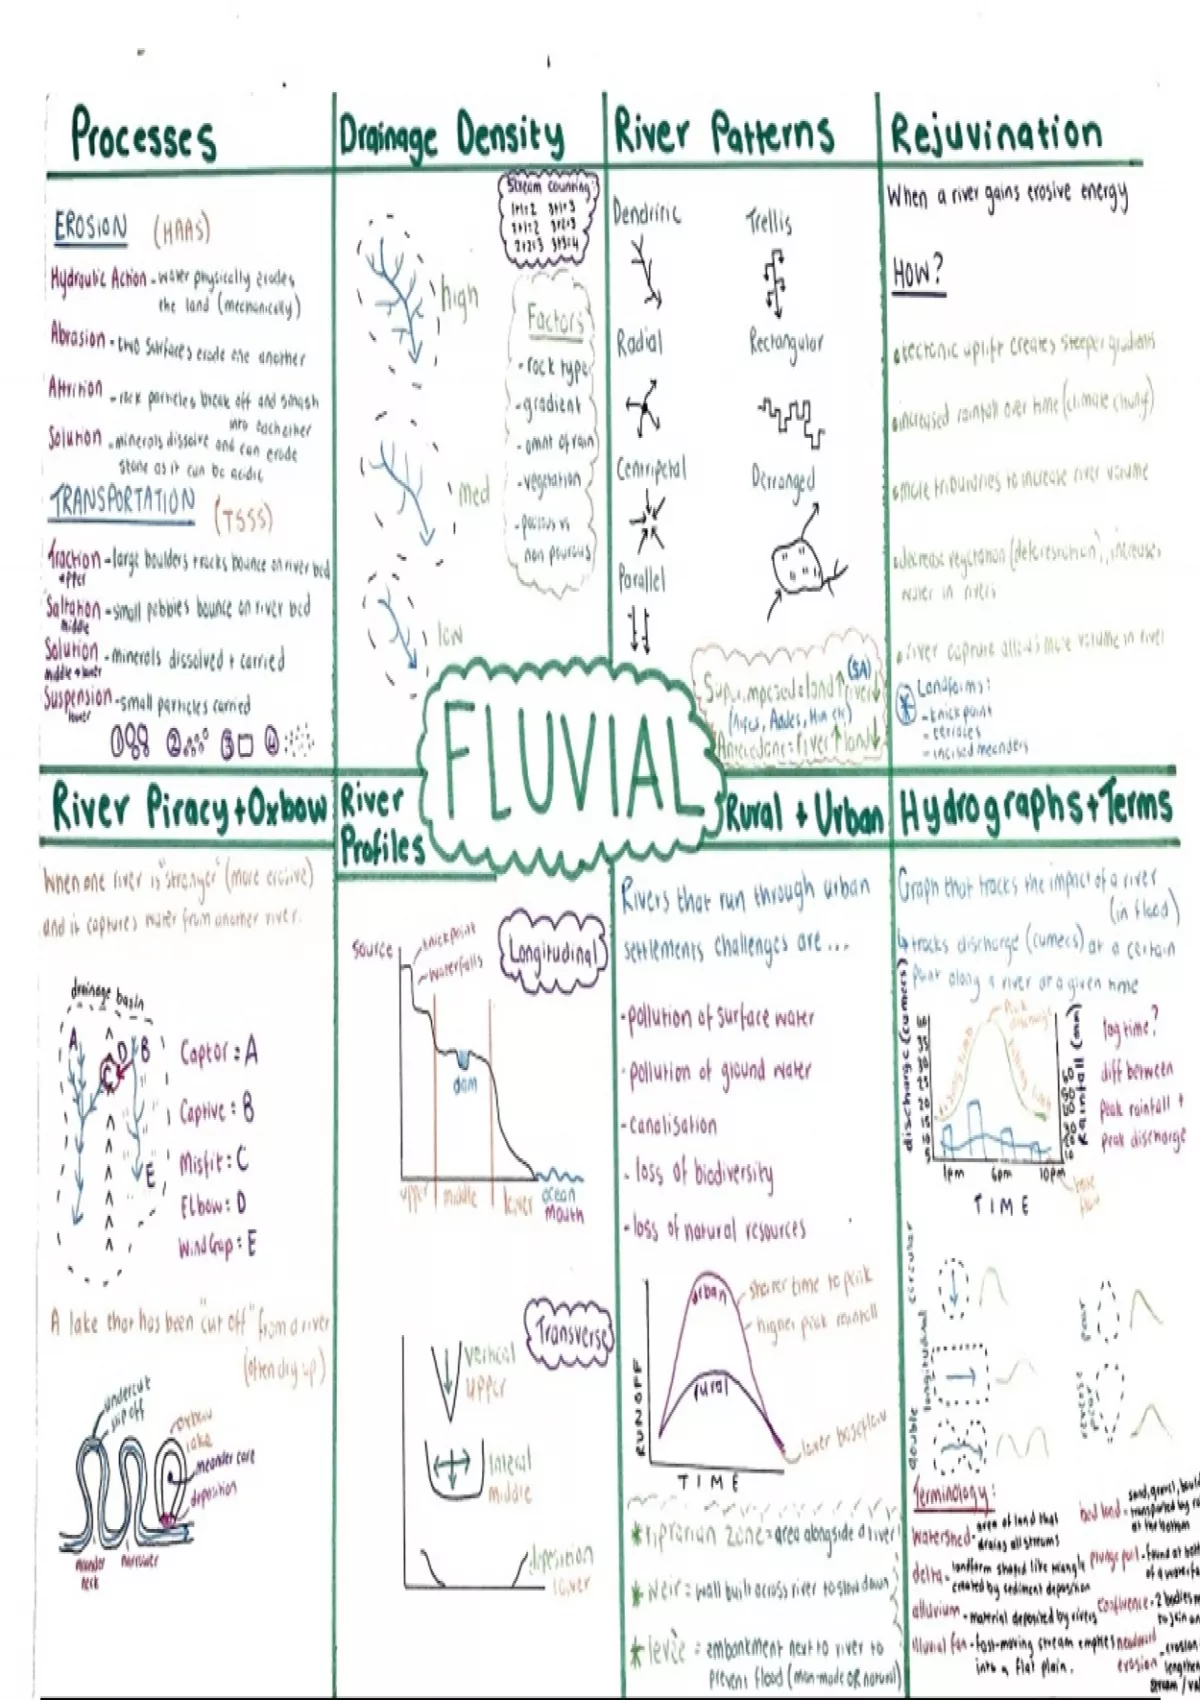 Processes
EROSION (HAAS)
Hydraulic Action - water physically erodes
the land (mechanically)
Abrasion - two surfaces erode one another
Attrition - rock particles break off and smash
into eachother
Solution - minerals dissolve and can erode
stone as it can be acidic
TRANSPORTATION (TSSS)
Traction - large boulders + rocks bounce on river bed
upper
Saltation - small pebbles bounce on river bed
middle
Solution - minerals dissolved + carried
middle + lower
Suspension - small particles carried
lower
1 2 3 4
Drainage Density
Stream counting:
1+1=2 3+1=3
2+1=2 3+2=3
2+2=3 3+3=4
high
med
low
Factors
- rock type
- gradient
- amnt of rain
- vegetation
- porous vs
non pourous
River Patterns
Dendritic
Trellis
Radial
Rectangular
Centripetal
Derranged
Parallel
(SA)
Superimposed = land↑ river↓
Antecedane = river↑ land↓
Rejuvination
When a river gains erosive energy
HOW?
• tectonic uplift creates steeper gradients
• increased rainfall over time (climate chang)
• more tributaries to increase river volume
• decrease vegetation (deforestation), increases
water in rivers
• river capture allows more volume in river
* Landforms:
- knick point
- terraces
- incised meanders
FLUVIAL
River Piracy + Oxbow
When one river is "stronger" (more erosive)
and it captures water from another river.
drainage basin
A
B
C
D
E
Captor = A
Captive = B
Misfit = C
Elbow = D
Wind Gap = E
A lake that has been "cut off" from a river
(often dry up)
undercut
slip off
oxbow
lake
meander core
deposition
meander
neck
narrower
River
Profiles
Longitudinal
Source
knickpoint
waterfalls
dam
upper middle lower
ocean
mouth
Transverse
vertical
upper
lateral
middle
deposition
lower
Rural + Urban
Rivers that run through urban
settlements challenges are ...
- pollution of surface water
- pollution of ground water
- canalisation
- loss of biodiversity
- loss of natural resources
urban
rural
shorter time to peak
higher peak rainfall
lower baseflow
RUNOFF
TIME
* riprarian zone = area alongside a river
* weir = wall built across river to slow down
* levee = embankment next to river to
prevent flood (man-made OR natural)
Hydrographs + Terms
Graph that tracks the impact of a river
(in flood)
↳ tracks discharge (cumecs) at a certain
point along a river at a given time
discharge (cumecs)
Rainfall (mm)
peak
discharge
1pm 6pm 10pm
TIME
base
flow
lag time?
diff between
peak rainfall +
peak discharge
circular
longitudinal
double
pear
reverse
pear
Terminology:
watershed - area of land that
drains all streams
delta - landform shaped like triangle
created by sediment deposition
alluvium - material deposited by rivers
alluvial fan - fast-moving stream empties
into a flat plain.
bed load - sand, gravel,
transported by
at the bottom
plunge pool - found at
of a
confluence - 2 bodies
to join
headward
erosion - erosion